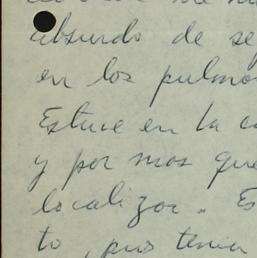 absurdo de se
en los pulmo
Estuve en la c
y por mas que
localizar. Es
to, pues tenia